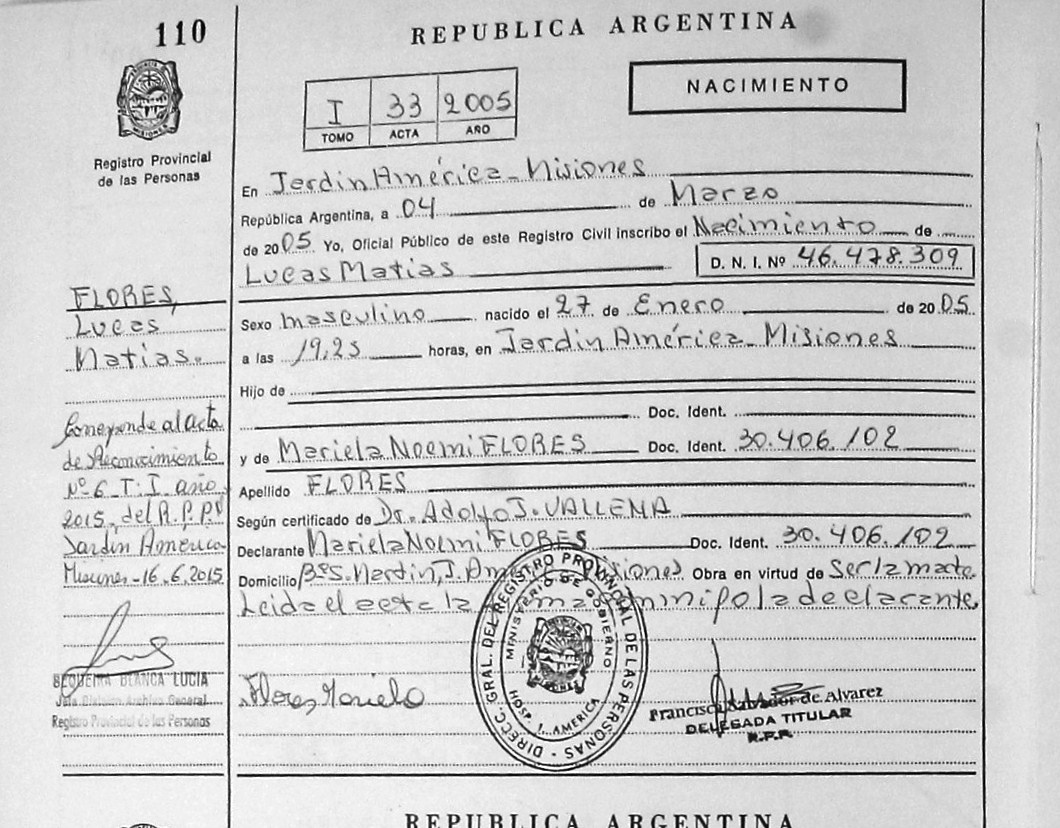 110
REPUBLICA ARGENTINA
NACIMIENTO
I 33 2005
TOMO ACTA AÑO
Registro Provincial
de las Personas
En Jardin América - Misiones
República Argentina, a 04 de Marzo
de 2005 Yo, Oficial Público de este Registro Civil inscribo el Nacimiento de
Lucas Matias D. N. I. Nº 46.478.309
Sexo masculino nacido el 27 de Enero de 2005
a las 19,25 horas, en Jardin América - Misiones
Hijo de
Doc. Ident.
y de Mariela Noemi FLORES Doc. Ident. 30.406.102
Apellido FLORES
Según certificado de Dr. Adolfo J. VALLENA
Declarante Mariela Noemi FLORES Doc. Ident. 30.406.102
Domicilio Bº S. Martin, J. Am Misiones Obra en virtud de Ser la madre.
Leida el acta la firma la declarante,
Flores Mariela
FLORES,
Lucas
Matias.
Corresponde al acta
de Reconocimiento
Nº 6 T: I año
2015 del R.P.P.
Jardín América
Misiones - 16.6.2015
SEQUEIRA BLANCA LUCIA
Jefa División Archivo General
Registro Provincial de las Personas
DIRECC. GRAL. DEL REGISTRO PROVINCIAL DE LAS PERSONAS
MINISTERIO DE GOBIERNO
HOSP. J. AMERICA
MISIONES
Francisca Salvador de Alvarez
DELEGADA TITULAR
R.P.P.
REPUBLICA ARGENTINA